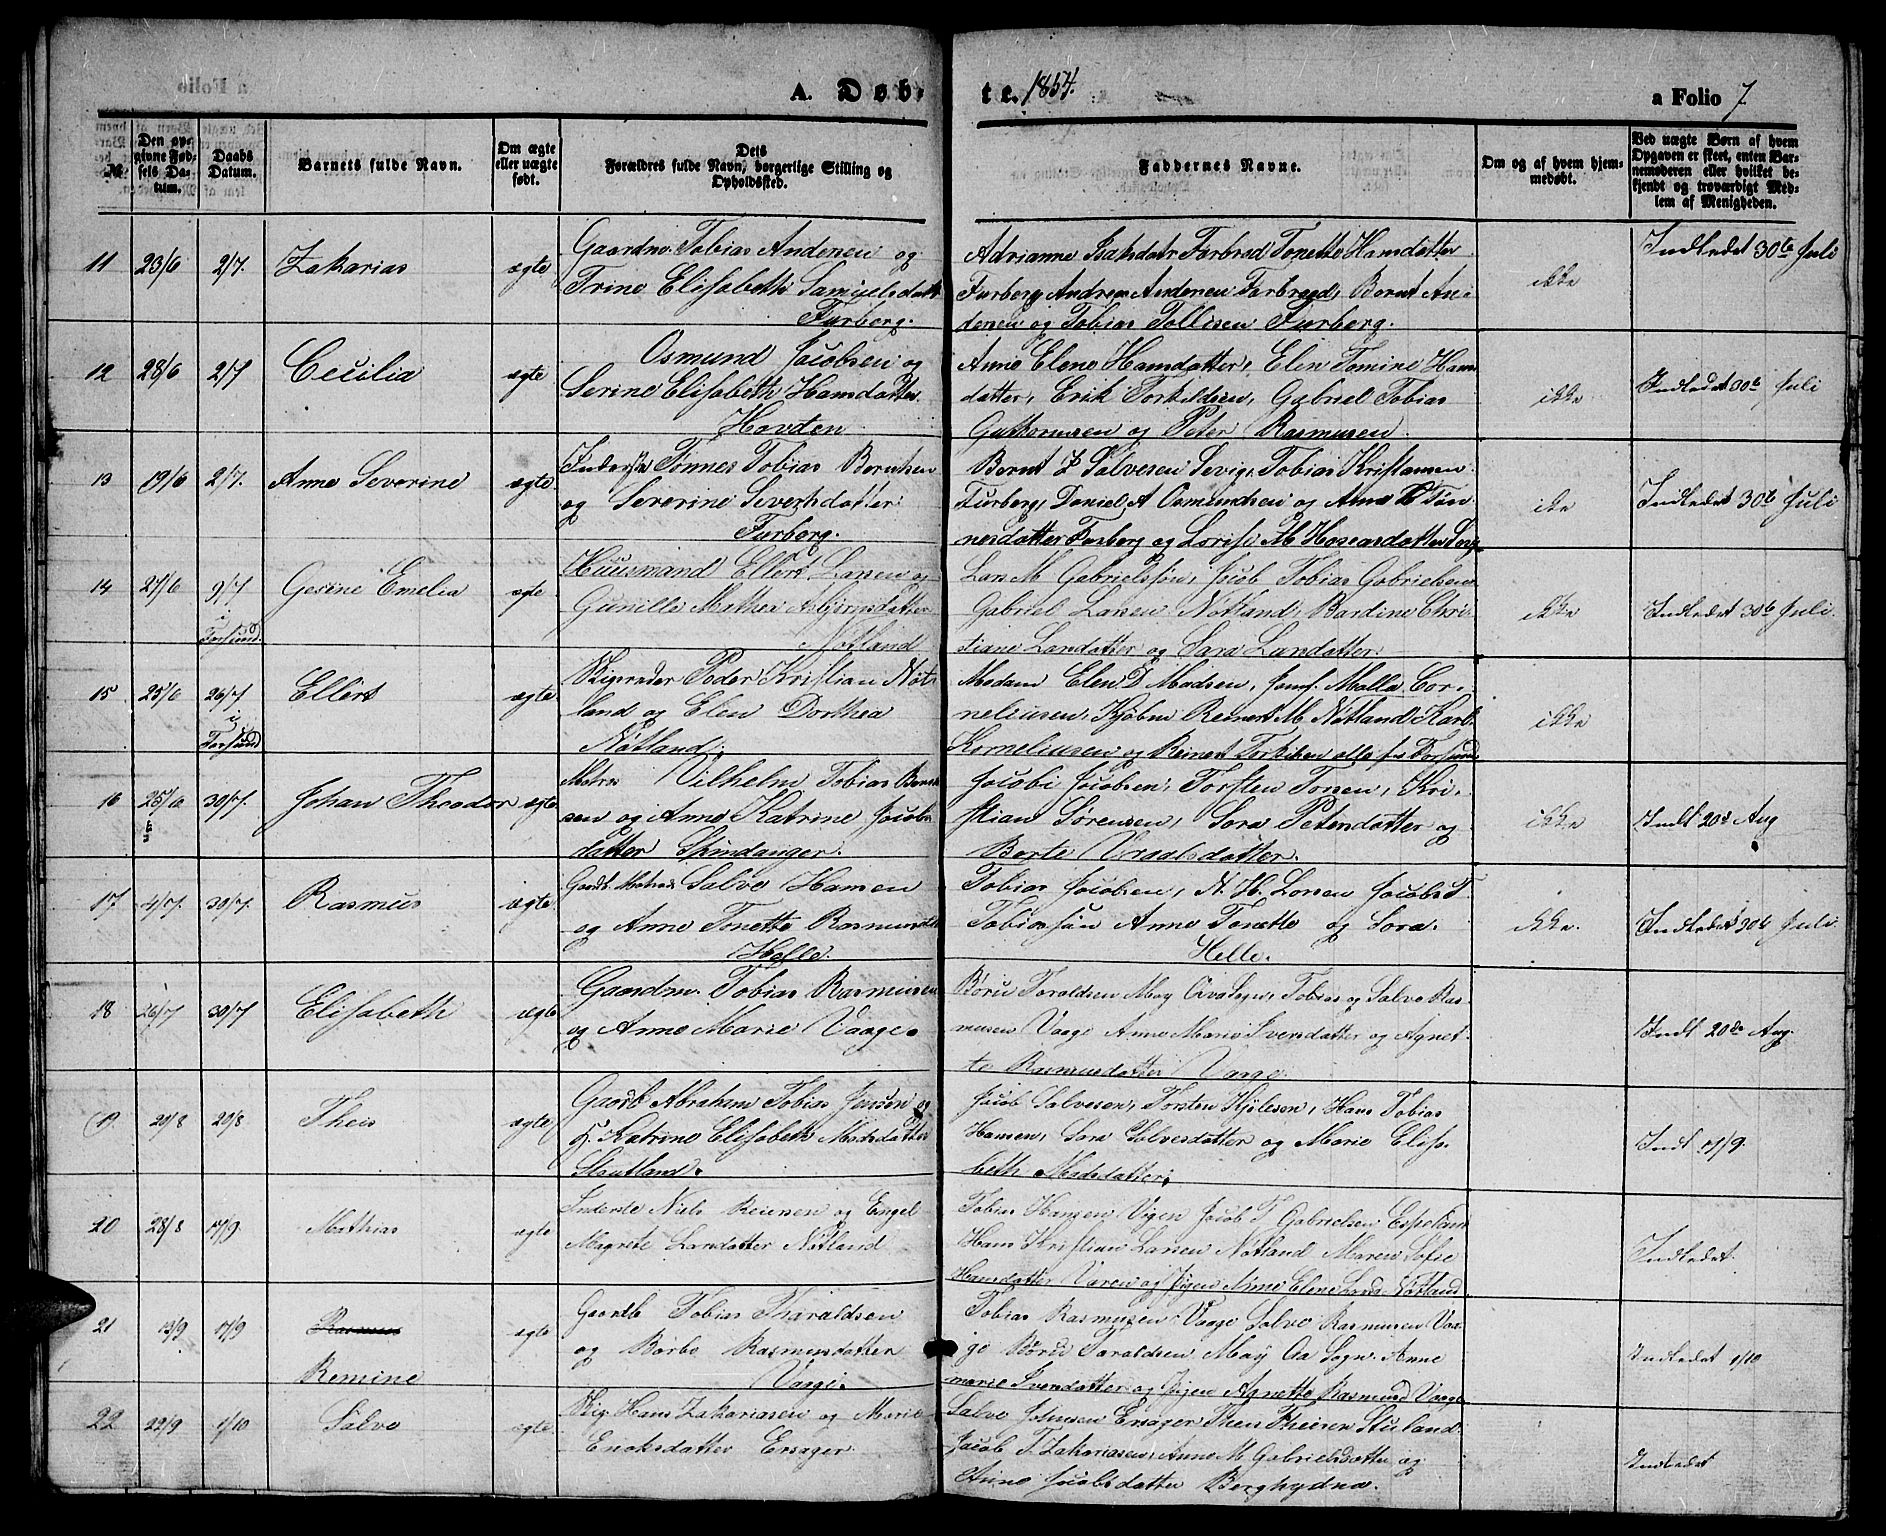 A. Døb-
te. 1854.
a Folio 7
№
Den op-
givne Fød-
sels Da-
tum.
Daabs
Datum.
Barnets fulde Navn.
Om ægte
eller uægte
født.
Dets
Forældres fulde Navn, borgerlige Stilling og
Opholdssted.
Faddernes Navne.
Om og af hvem hjem-
medøbt.
Ved uægte Børn af hvem
Opgaven er skeet, enten Bar-
nemoderen eller hvilket be-
kjendt og troværdigt Med-
lem af Menigheden.
11 23/6 2/7. Zakarias ægte
Gaardm. Tobias Andersen og
Trine Elisabeth Samuelsdatt
Furberg.
Adrianne Isaksdatr Farbrød Tonette Hansdatter
Furberg, Andreas Andersen Farbrød, Bernt An-
dersen og Tobias Tollisen Furberg.
ikke
Indledet 30te Juli
12 28/6 2/7 Cecilia ægte
Osmund Jacobsen og
Serine Elisabeth Hansdatter
Hovden
Anne Elene Hansdatter, Elen Tomine Hans
datter, Erik Torkildsen, Gabriel Tobias
Guttormsen og Peter Rasmusen.
ikke
Indledet 30te Juli
13 19/6 2/7. Anne Severine ægte
Inderste Tønnes Tobias Berntsen
og Severine Sivertsdatter
Furberg.
Bernt Salvesen Sevig, Tobias Kristansen
Furberg, Daniel A Osmundsen og Anne Tøn-
nesdatter Furberg og Lovise M Hoseasdatter
ikke
Indledet 30te Juli
14 27/6 9/7 i Farsund. Gesine Emelia ægte
Huusmand Ellert Larsen og
Gunille Mathea Asbjørnsdatter
Nøtland
Lars M Gabrielsen, Jacob Tobias Gabrielsen
Gabriel Larsen Nøtland, Bardine Chri-
stiane Larsdatter og Sara Larsdatter.
ikke
Indledet 30te Juli.
15 25/6 26/7 i Farsund Ellert ægte
Skipsreder Peder Kristian Nøt-
land og Elen Dorthea
Nøtland.
Madam Elen D Madsen, Jomf. Malla Cor-
neliusen, Kjøbm Reinert M Nøtland, Karl
Korneliusen og Reinert Torkilsen alle fra Farsund
ikke
16 25/6 30/7. Johan Theodor ægte
Matros Vilhelm Tobias Bernt
sen og Anne Katrine Jacobs
datter Skindanger.
Jacob Jacobsen, Torsten Torsen, Kri-
stian Sørensen, Sara Petersdatter og
Berte Vraalsdatter.
ikke
Indt 20de Aug
17 4/7. 30/7. Rasmus ægte
Gaardb. Matros Salve Hansen
og Anne Tonette Rasmusdtr
Helle.
Tobias Jacobsen, N. H. Larsen Jacob T
Tobiassen Anne Tonette og Sara.
Helle.
ikke.
Indledet 30te Juli
18 26/7 30/7 Elisabeth ægte
Gaardm. Tobias Rasmusen
og Anne Marie Vaage.
Børu Taraldsen May Oa Sogn, Tobias og Salve Ras-
musen Vaage Anne Marie Svensdatter og Agnet-
te Rasmusdatter Vaage.
Indt 20de Aug.
19. 20/8 20/8 Theis ægte
Gaardb Abraham Tobias Jensen og
H. Katrine Elisabeth Madsdatter
Stautland.
Jacob Salvesen, Torsten Kjelesen, Hans Tobias
Hansen, Sara Salvesdatter og Marie Elisa-
beth Madsdatter.
Indt 17/9.
20 28/8 17/9 Mathias ægte
Inderste Niels Reiersen og Engel
Magrete Larsdatter Nøtland
Tobias Hansen Vigen Jacob T Gabrielsen Espeland
Hans Kristian Larsen Nøtland Maren Sofie
Hansdatter Varen og Pigen Anne Elene Larsd. Nøtland
Indledet.
21 13/9 17/9 Rasmus
Remine ægte
Gaardb Tobias Tharaldsen
og Børbo Rasmusdatter
Vaage.
Tobias Rasmusen Vaage Salve Rasmusen Vaa-
ge Børu Taraldsen May Oa Sogn. Anne
marie Svensdatter og Pigen Agnette Rasmusd Vaage
Indledet 1/10
22 22/9 1/10 Salve ægte
Skip. Hans Zakariasen og Marie
Enoksdatter Ersager
Salve Johnsen Ersager Theis Theisen Stuland
Jacob T. Zakariasen, Anne M Gabrielsdatter og
Anne Jacobsdatter Berghydna.
Indledet